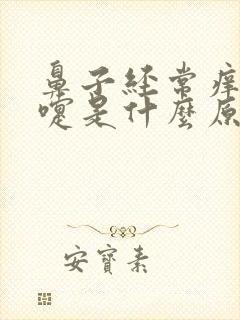 鼻子經常痒
嚏是什麼原
安寶素